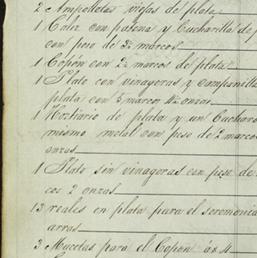 2 Ampolletas viejas de plata
1 Caliz con patena y Cucharilla de p
con peso de 3½ marcos
1 Copón con 2½ marcos de plata
1 Plato con vinageras y campanilla
plata con 5 marcos 4½ onzas
1 Hostiario de plata y un Cucharo
mismo metal con peso de 2 marcos
onzas
1 Plato sin vinageras con peso de
cos 2 onzas
13 reales en plata para el ceremonia
arras
3 Mucetas para el Copon